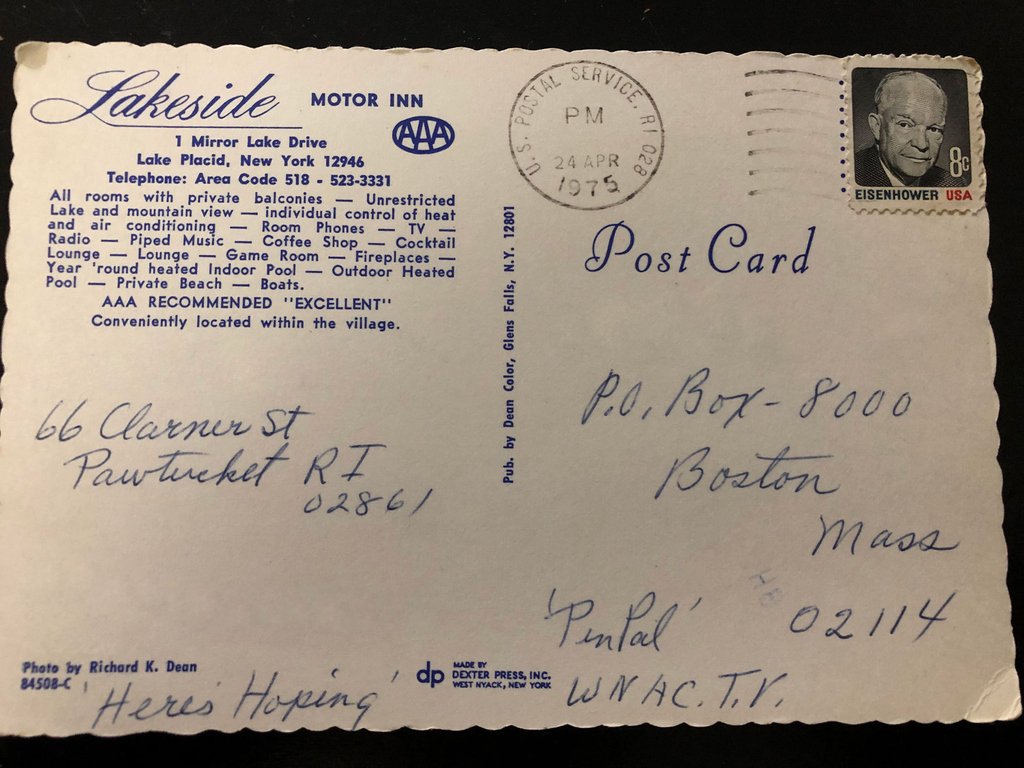 Lakeside MOTOR INN
AAA
1 Mirror Lake Drive
Lake Placid, New York 12946
Telephone: Area Code 518 - 523-3331
All rooms with private balconies — Unrestricted
Lake and mountain view — individual control of heat
and air conditioning — Room Phones — TV —
Radio — Piped Music — Coffee Shop — Cocktail
Lounge — Lounge — Game Room — Fireplaces —
Year 'round heated Indoor Pool — Outdoor Heated
Pool — Private Beach — Boats.
AAA RECOMMENDED "EXCELLENT"
Conveniently located within the village.
66 Clarner St
Pawtucket RI
02861
Photo by Richard K. Dean
84508-C
'Here's Hoping'
Pub. by Dean Color, Glens Falls, N.Y. 12801
dp
MADE BY
DEXTER PRESS, INC.
WEST NYACK, NEW YORK
U.S. POSTAL SERVICE, RI 028
PM
24 APR
1975
8c
EISENHOWER USA
Post Card
P.O. Box - 8000
Boston
Mass
02114
'Pen Pal'
WNAC. T.V.
HB